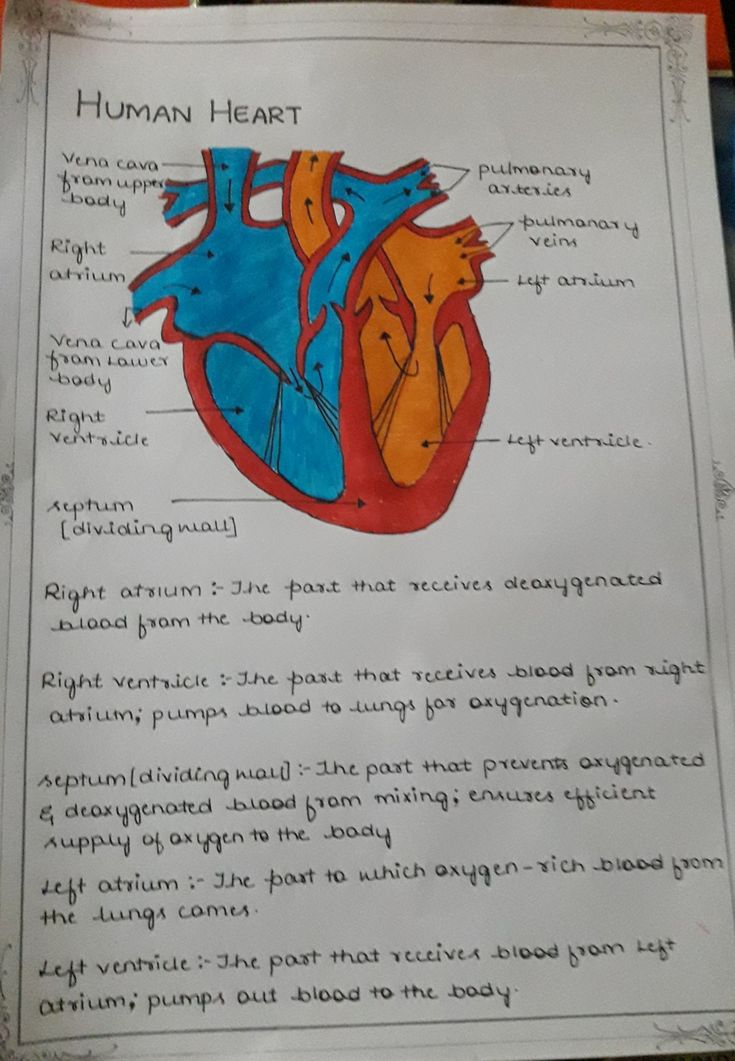 HUMAN HEART
Vena cava
from upper
body
Right
atrium
Vena cava
from Lower
body
Right
ventricle
septum
[dividing wall]
pulmonary
arteries
pulmonary
veins
Left atrium
Left ventricle.
Right atrium :- The part that receives deoxygenated
blood from the body.
Right ventricle :- The part that receives blood from right
atrium; pumps blood to lungs for oxygenation.
septum [dividing wall] :- The part that prevents oxygenated
& deoxygenated blood from mixing; ensures efficient
supply of oxygen to the body
Left atrium :- The part to which oxygen-rich blood from
the lungs comes.
Left ventricle :- The part that receives blood from Left
atrium; pumps out blood to the body.